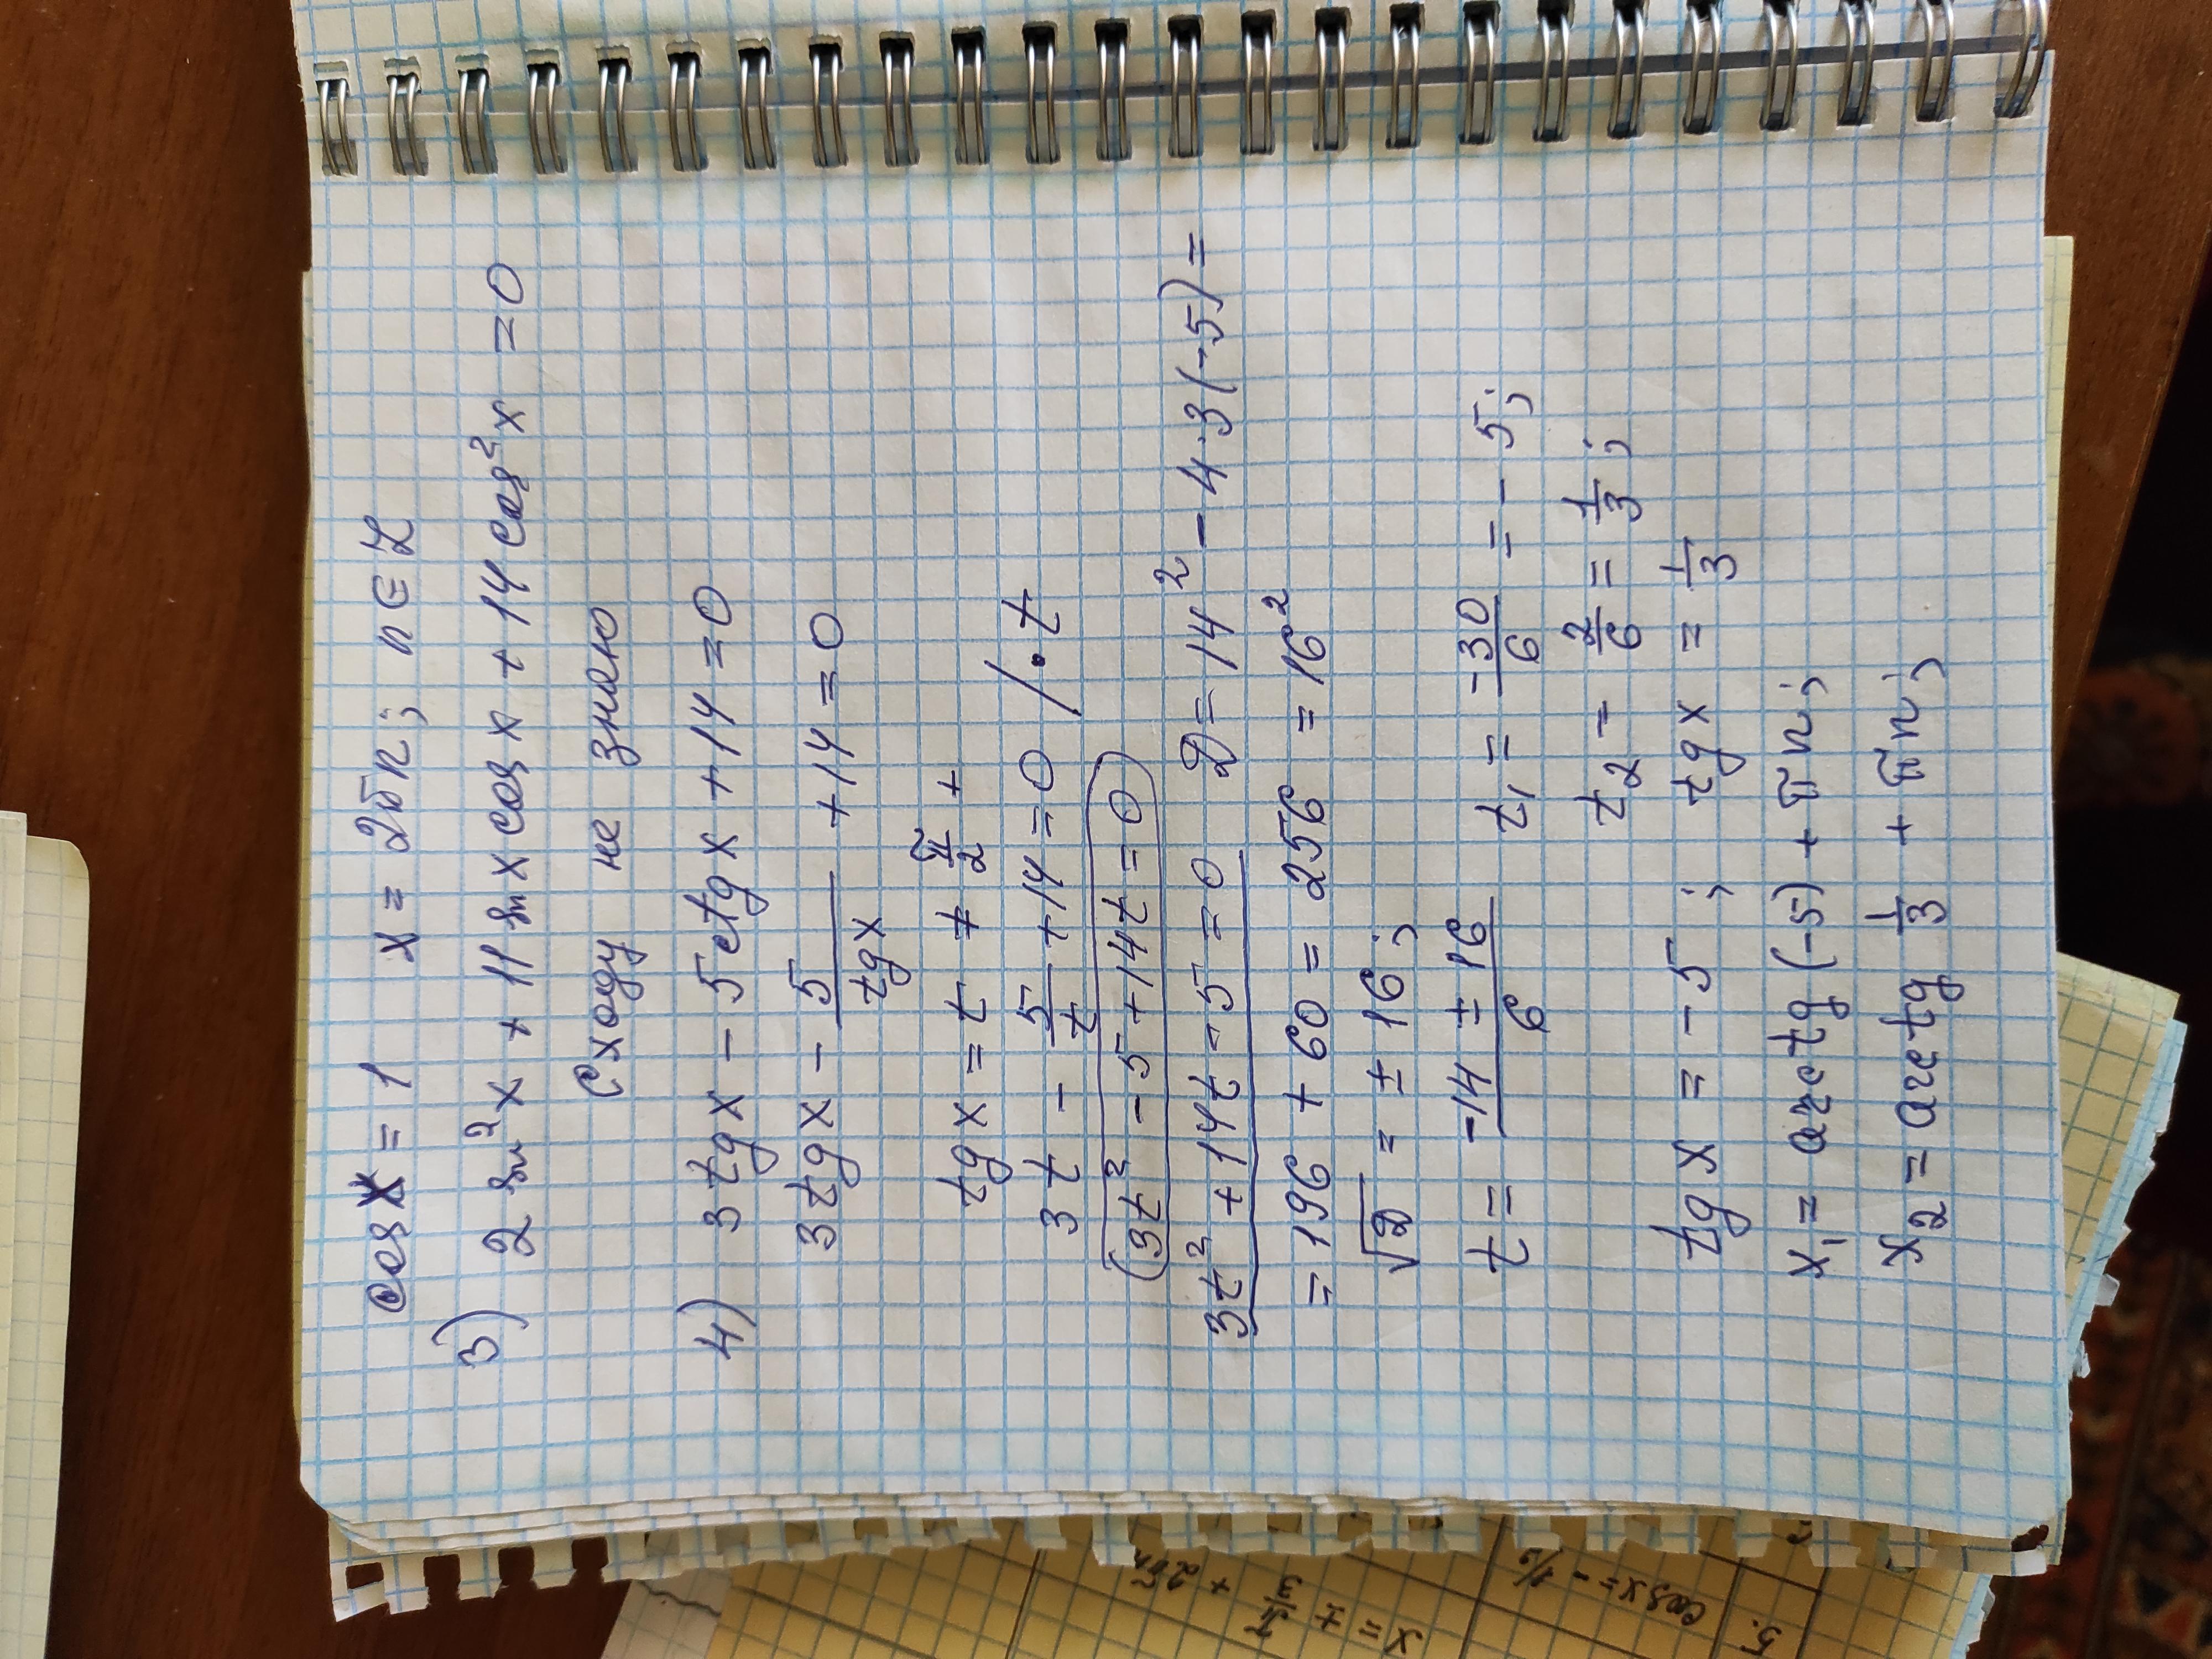 cos x = 1 x = 2πn; n ∈ Z
3) 2 sin² x + 11 sin x cos x + 14 cos² x = 0
Сходу не знаю
4) 3 tg x - 5 ctg x + 14 = 0
3 tg x - 5/tg x + 14 = 0
tg x = t ≠ π/2 +
3t - 5/t + 14 = 0 / · t
(3t² - 5 + 14t = 0)
3t² + 14t - 5 = 0 D = 14² - 4·3(-5) =
= 196 + 60 = 256 = 16²
√D = ± 16;
t = -14 ± 16/6 t₁ = -30/6 = -5;
t₂ = 2/6 = 1/3;
tg x = -5; tg x = 1/3
x₁ = arctg (-5) + πn;
x₂ = arctg 1/3 + πn;
x = ± π/3 + 2πn
5. cos x = -1/2